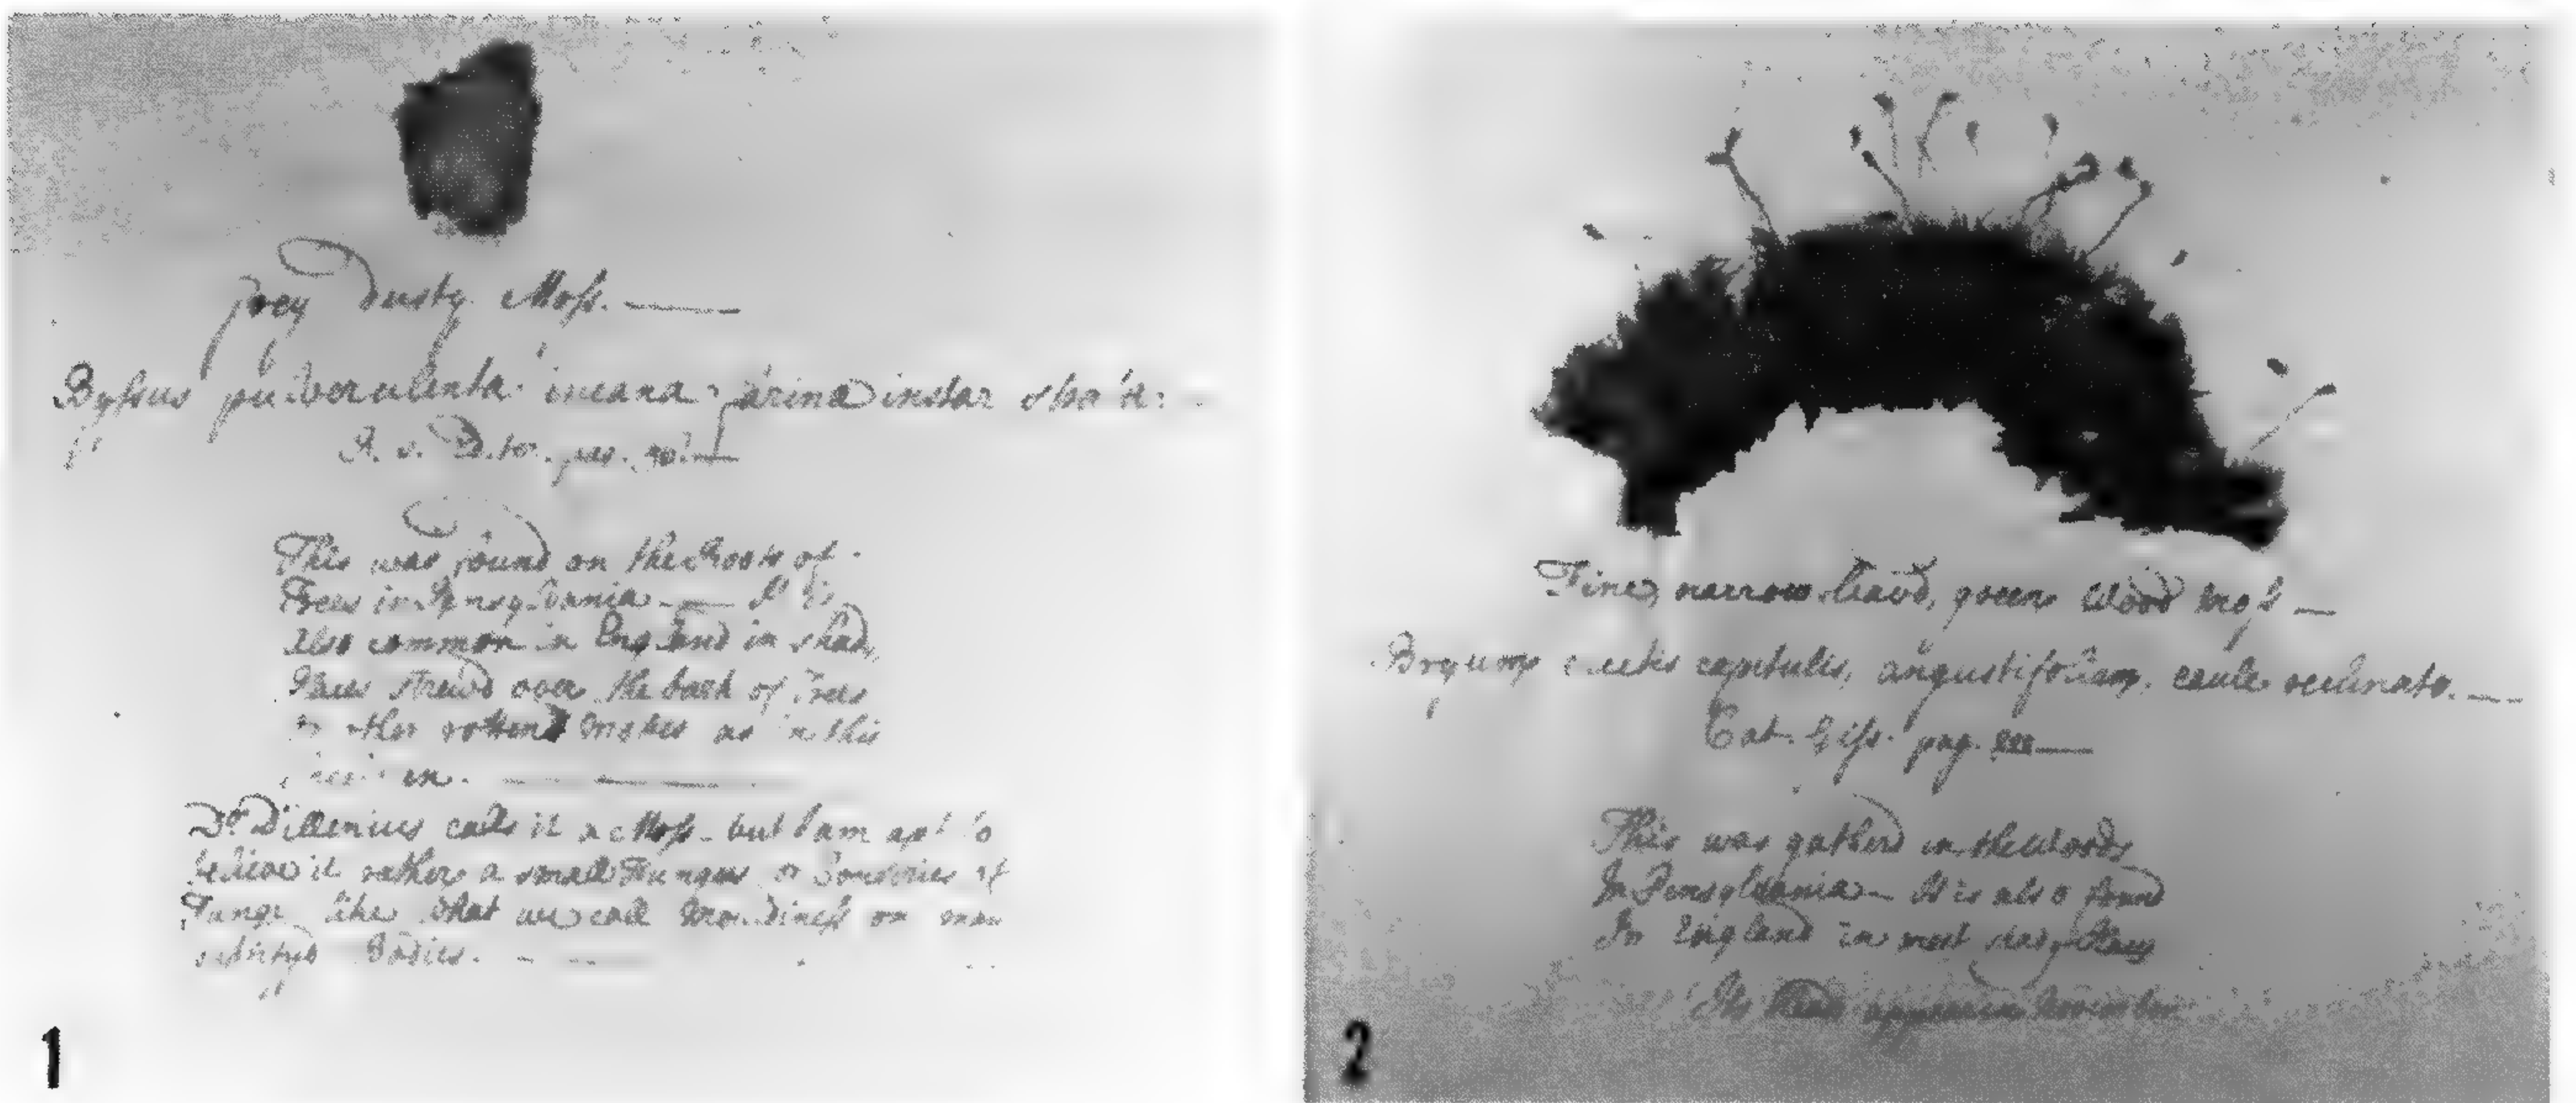 Grey Dusty Moss.
Byssus pulverulenta incana farinæ instar
This was found on the Roots of
Trees in Pensylvania — It is
also common in England in shady
Places strewd over the bark of Trees
or other rotten as in this
Dr. Dillenius calls it a Moss - but I am apt to
believe it rather a small Fungus or of
Fungi like what we call mouldiness on
Bodies.
1
Fine, narrow leavd, green Wood Moss —
Bryum erectis capitulis, angustifolium, caule reclinato. —
Cat. Giss. pag. 222 —
This was gatherd in the Woods
In Pensylvania — It is also found
In England in most shady Places
Its Heads appear in November
2